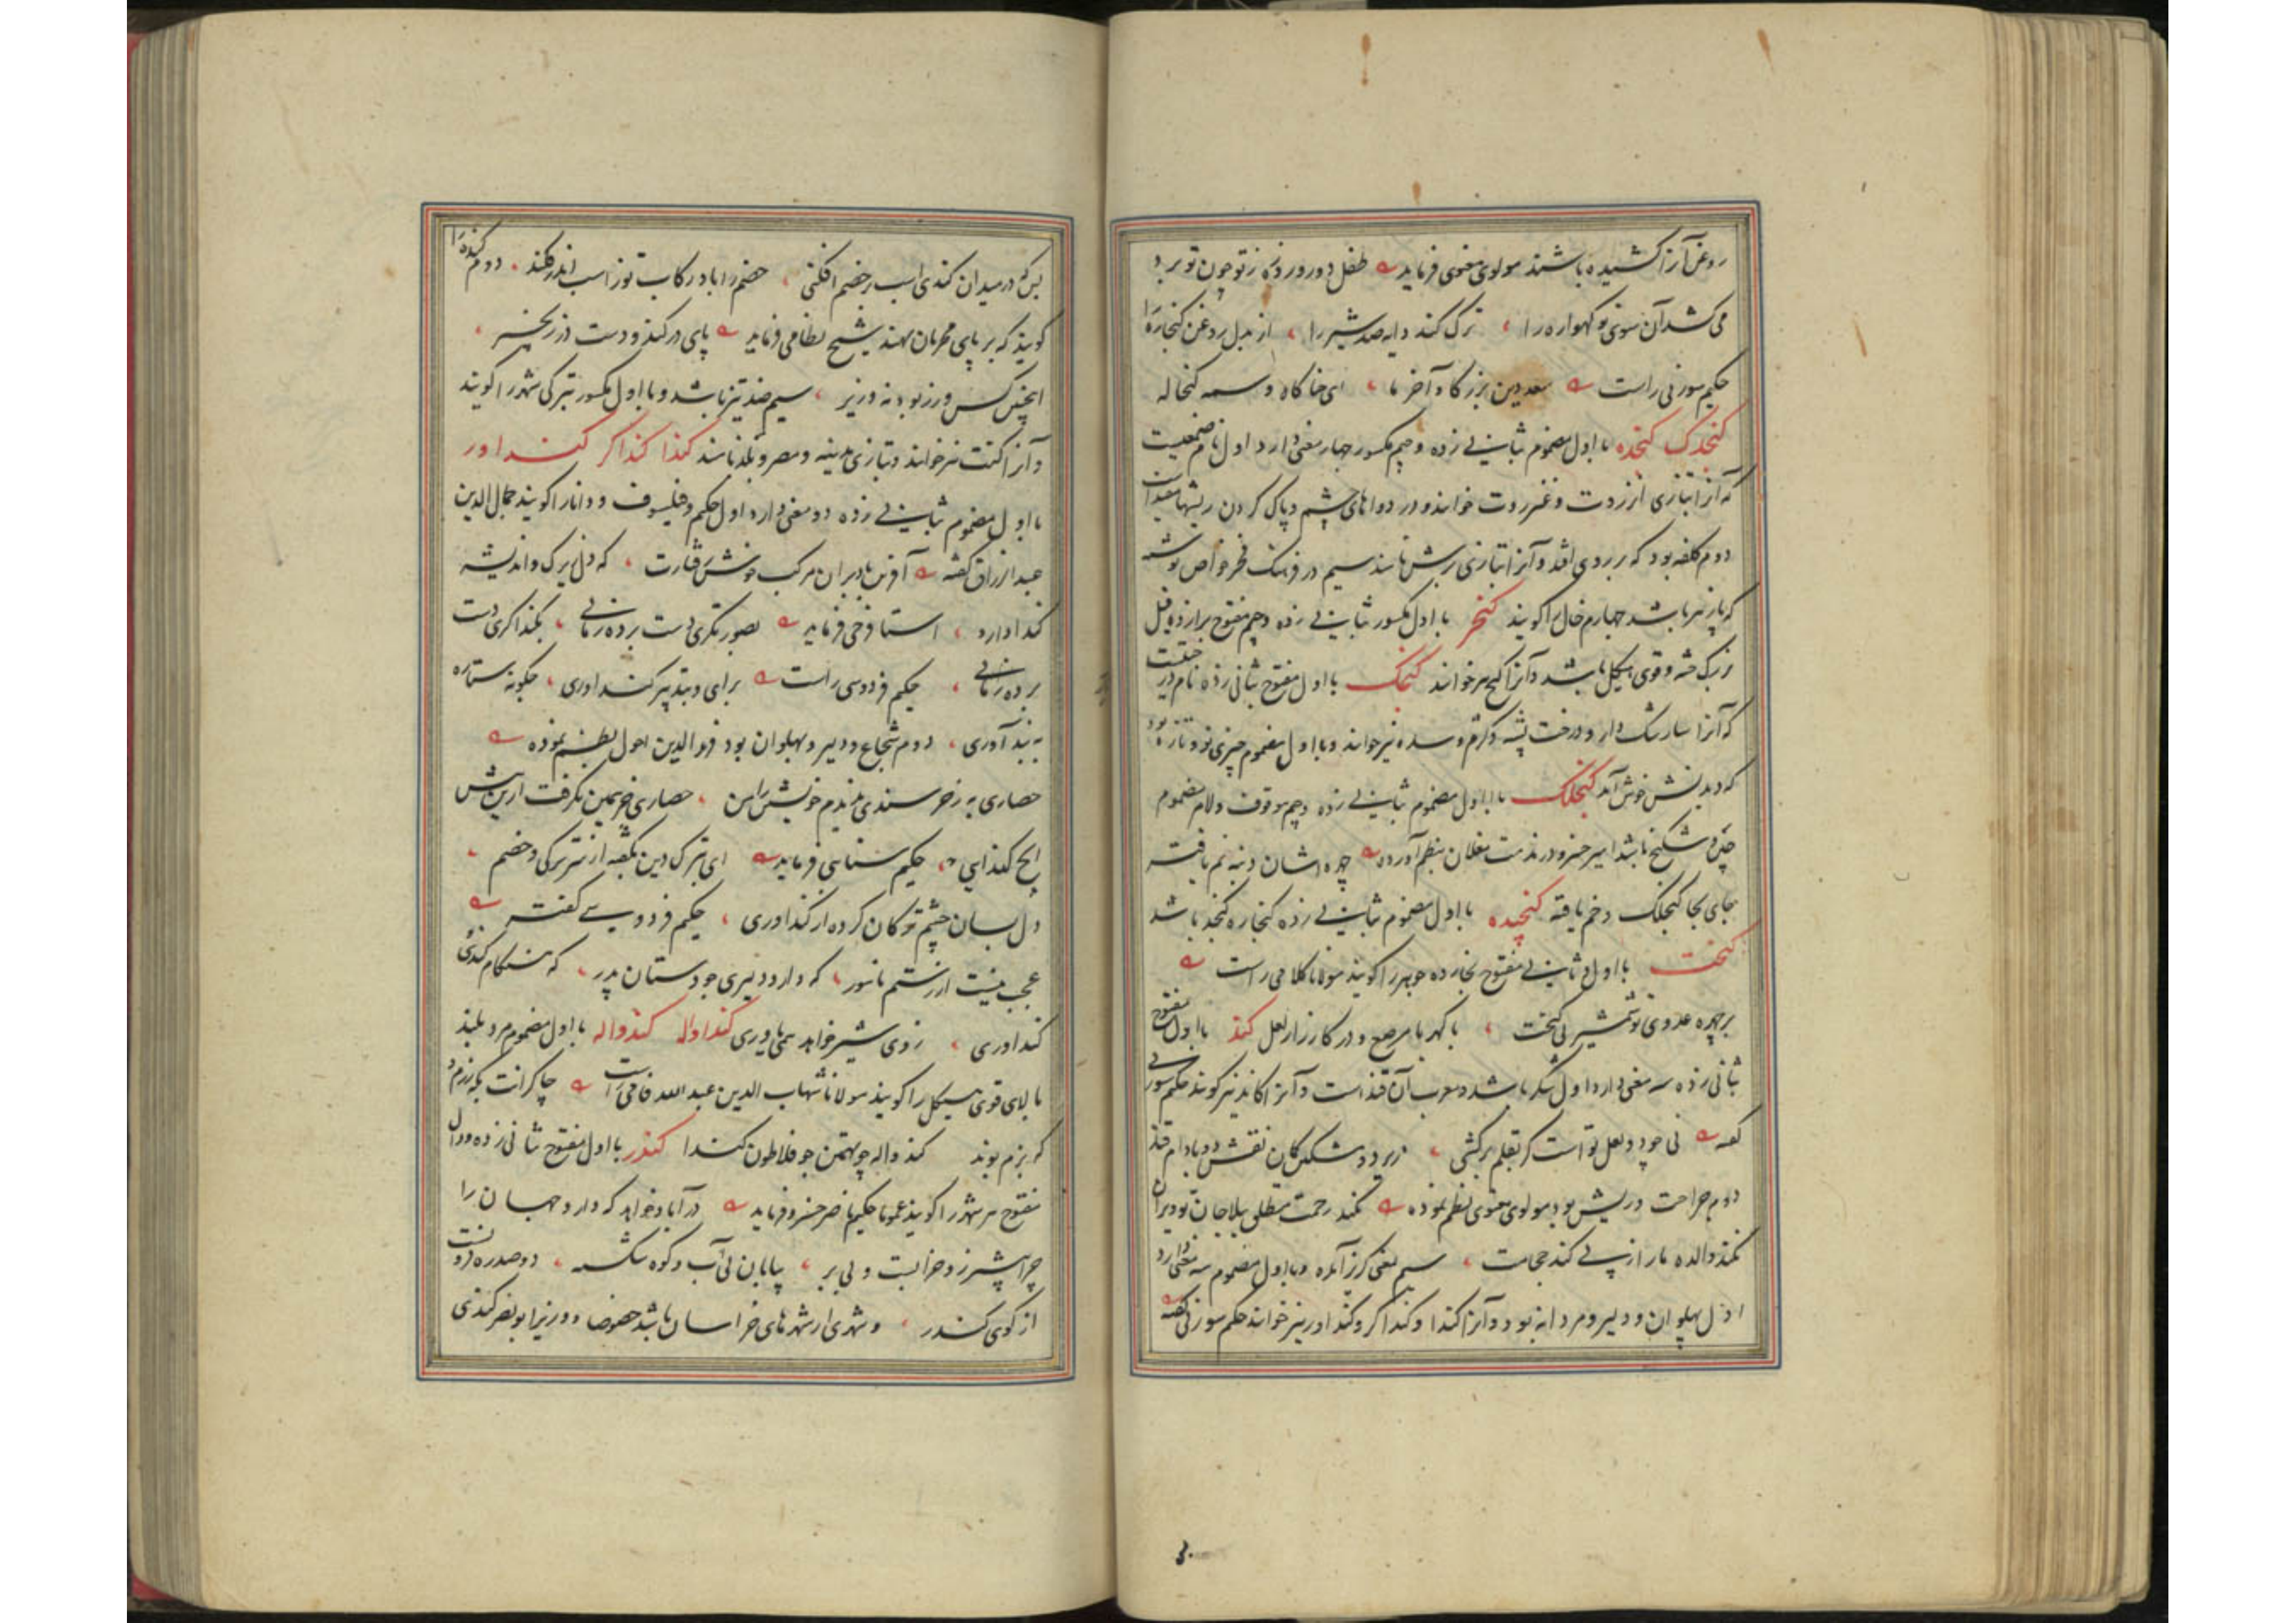 روغن آنرا کشیده باشند مولوی معنوی فرماید طفل دو روزه ز تو چون بو برد
می کشد آن سوی تو کهواره را ترک کند دایه صد شیر را از بدل روغن کنجاره را
حکیم سوزنی راست سعد دین بزرکا و آخر ما ای خنا کاه وسمه کنجاله
کنجدک کنجده با اول مضموم بثانی زده وجیم مکسور چهار معنی دارد اول نام صمغیست
که آنرا بتازی انزروت و عنزروت خوانند و در دواهای چشم و پاک کردن ریشها مفید است
دوم کلفه بود که بر روی افتد و آنرا بتازی برش نامند سیم در فرهنک فخر قواص نوشته
که پازهر باشد چهارم خال را کویند کنجر با اول مکسور بثانی زده وجیم مفتوح برازده فیل
بزرک جثه و قوی هیکل باشد و آنرا کنجر خوانند کنجک با اول مفتوح بثانی زده نام درختیست
که آنرا سارشک دار و درخت پشه و کژم و سده نیز خوانند و با اول مضموم چیزی نو و تازه بود
که دیدنش خوش آید کنجلک با اول مضموم بثانی زده وجیم موقوف و لام مضموم
چین و شکنج باشد امیر خسرو در مذمت مغلان بنظم آورده چهره اشان دنبه نم یافته
جای بجا کنجلک و خم یافته کنجیده با اول مضموم بثانی زده کنجاره کنجد باشد
کنخت با اول و ثانی مفتوح بخازده جوهر را کویند مولانا کلامی راست
بر چهره عدوی تو شمشیر بی کنخت با کهر با مرصع و در کارزار لعل کند با اول مفتوح
بثانی زده سه معنی دارد اول شکر باشد و معرب آن قند است و آنرا کاند نیز کویند حکیم سوزنی
کفته نی چو دو لعل تو است کر بقلم برکشی زیر دو مشکین کمان نقش دو بادام قند
دوم جراحت و ریش بود مولوی معنوی نظم نموده
نکند والده مار از پی کند حجامت سیم بمعنی کرز آمده و با اول مضموم سه معنی دارد
اول پهلوان و دلیر و مردانه بود و آنرا کندا و کنداکر و کنداور نیز خوانند حکیم سوزنی کفته
بس که در میدان کندی اسب بر خصم افکنی خصم را با در رکاب تو ز اسب اندر فکند دوم کنده را
کویند که بر پای مجرمان نهند شیخ نظامی فرماید پای در کند و دست در زنجیر
اینچنین کس وزر بود نه وزیر سیم ضد تیز باشد و با اول مکسور بترکی شهر را کویند
و آنرا کنت نیز خوانند و بتازی مدینه و مصر و بلد نامند کندا کنداکر کنداور
با اول مضموم بثانی زده دو معنی دارد اول حکیم و فیلسوف و دانا را کویند جمال الدین
عبدالرزاق کفته آفرین بادا بران مرکب خوش رفتارت که دل زیرک و اندیشه
کندا دارد استا فرخی فرماید بصورتکری دست برده ز مانی بکنداکری دست
برده ز مانی حکیم فردوسی راست برای و بتدبیر کنداوری چکونه ستاره
به بند آوری دوم شجاع و دلیر و پهلوان بود فریدالدین احول بنظم نموده
حصاری به ز خرسندی ندیدم خویشتن را من حصاری جز همین نکرفت ازین پیش
ایچ کندایی حکیم سنایی فرماید ای بترک دین بکفته از سر ترکی و خشم
دل بسان چشم ترکان کرده از کنداوری حکیم فردوسی کفته
عجب نیست از رستم نامور که دارد دلیری چو دستان پدر که هنکام کردی و
کنداوری ز وی شیر خواهد همی یاوری کنداوله کندواله با اول مضموم مرد بلند
بالای قوی هیکل را کویند مولانا شهاب الدین عبدالله خافی راست چاکرانت بکه رزم
که بزم بوند کندواله چو تهمتن چو فلاطون کندا کندر با اول مفتوح بثانی زده و دال
مفتوح هر شهر را کویند عموما حکیم ناصر خسرو فرماید در آباد خواهد که دارد جهان را
چرا بیشتر زو خرابست و بی بر بیابان بی آب و کوه شکسته دو صد ره فزونست
از کوی کندر و شهری از شهرهای خراسان باشد خصوصا و وزیر ابونصر کندری